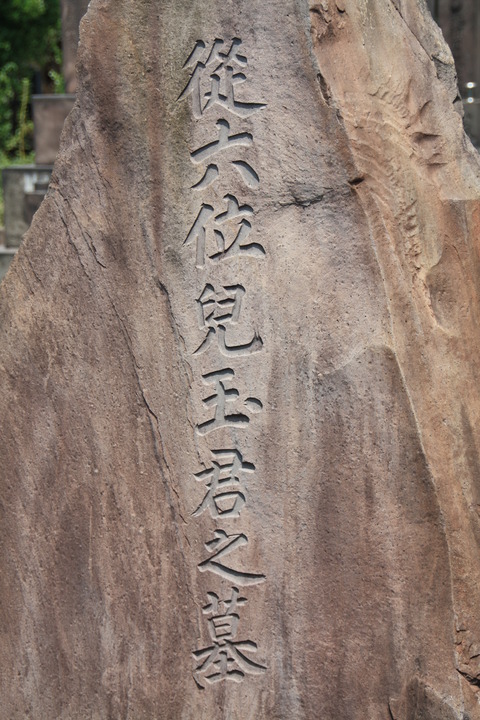 從六位兒玉君之墓